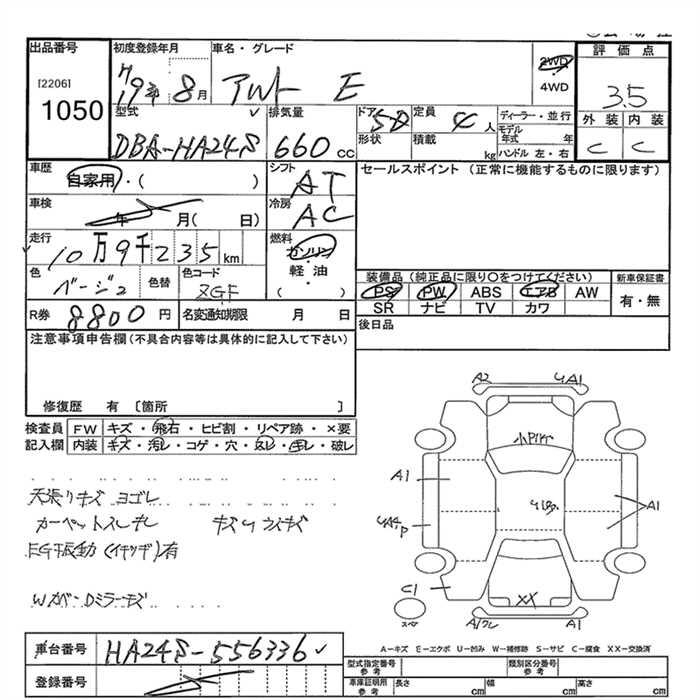 出品番号 初度登録年月 車名・グレード 評価点
[2206] H19年 8月 アルト E 2WD 4WD 3.5
1050
型式 排気量 ドア 形状 定員 4人 積載 kg ディーラー・並行 外装 内装
DBA-HA24S 660cc 5D モデル年式 年 C C
ハンドル 左・右
車歴 自家用・( ) シフト AT セールスポイント (正常に機能するものに限ります)
車検 年 月( 日) 冷房 AC
走行 10万9千235km 燃料 ガソリン
軽油
・
( )
色 ベージュ 色替 色コード ZGF
装備品 (純正品に限り○をつけてください) 新車保証書
PS PW ABS エアB AW 有・無
SR ナビ TV カワ
R券 8800円 名変通知期限 月 日 後日品
注意事項申告欄(不具合内容等は具体的に記入して下さい)
修復歴 有 〔箇所 〕
検査員 FW キズ・飛石・ヒビ割・リペア跡・×要
記入欄 内装 キズ・汚レ・コゲ・穴・スレ・キレ・破レ
天張リキズ ヨゴレ
カーペットスレキレ キズ
EG振動(イキツギ)有
Wカバー Dミラーキズ
A2 A1
小P
A1
A1
P
C1
スペ
XX
A1 A1
A-キズ E-エクボ U-凹み W-補修跡 S-サビ C-腐食 XX-交換済
車台番号 HA24S-556336
登録番号
型式指定番号 参考 類別区分番号 参考
車庫証明用 参考 長さ cm 幅 cm 高さ cm